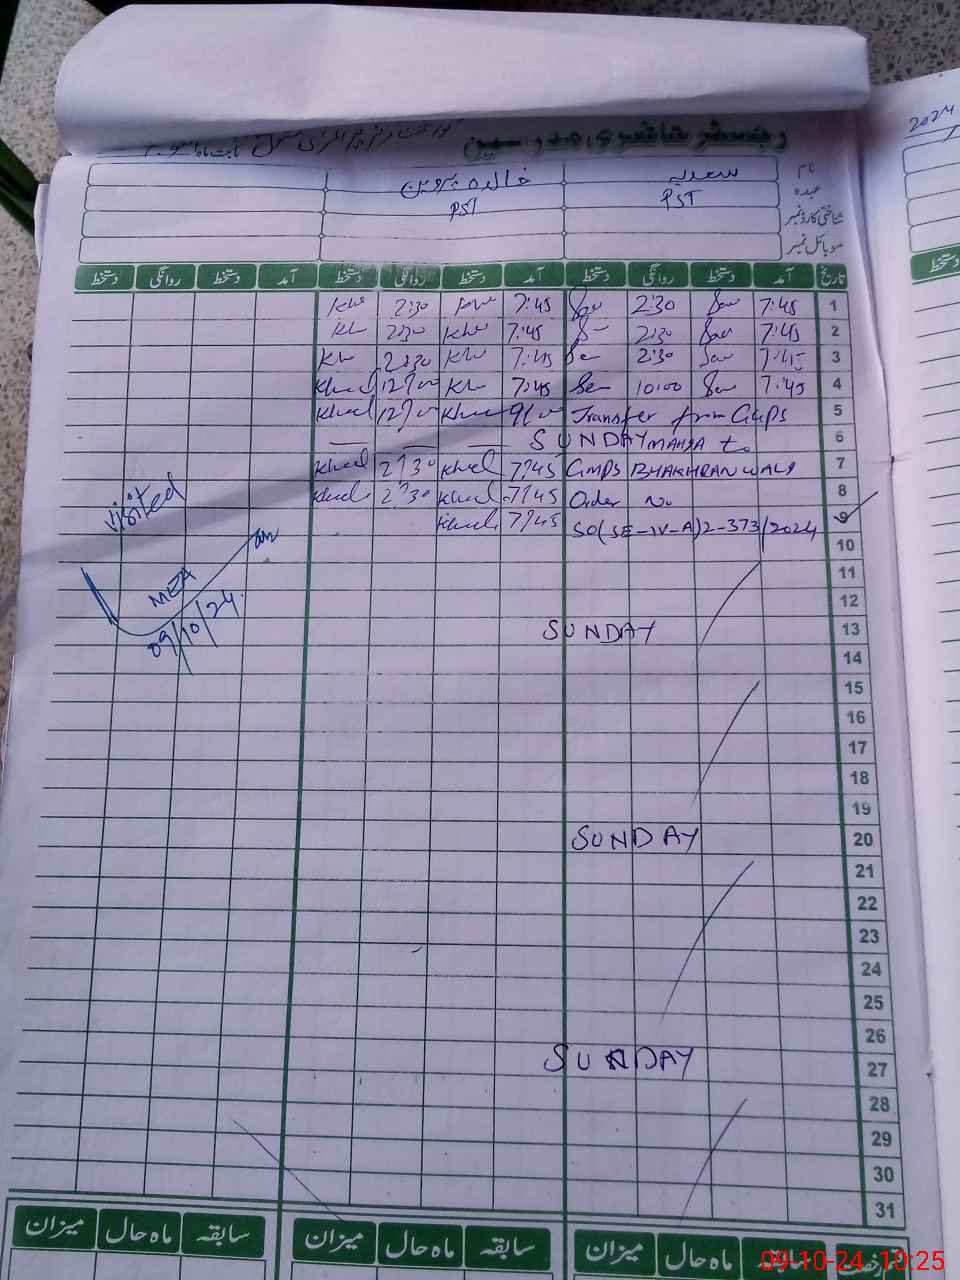 2024
رجسٹر حاضری مدرسین
نام سعدیہ خالدہ پروین
عہدہ PST PST
شناختی کارڈ نمبر
موبائل نمبر
تاریخ آمد دستخط روانگی دستخط آمد دستخط روانگی دستخط آمد دستخط روانگی دستخط
دستخط
1 7:45 2:30 7:45 2:30
2 7:45 2:30 7:45 2:30
3 7:45 2:30 7:45 2:30
4 7:45 10:00 7:45 12:00
5 Transfer from GGPS 9:00 12:00
6 SUNDAY to
7 GMPS BHAKHRANWALI 7:45 2:30
8 Order No 7:45 2:30
9 SO(SE-IV-A)2-373/2024 7:45
10
11
12
13 SUNDAY
14
15
16
17
18
19
20 SUNDAY
21
22
23
24
25
26
27 SUNDAY
28
29
30
31
visited
MEA
09/10/24
سابقہ ماہ حال میزان سابقہ ماہ حال میزان سابقہ ماہ حال میزان
09-10-24 10:25